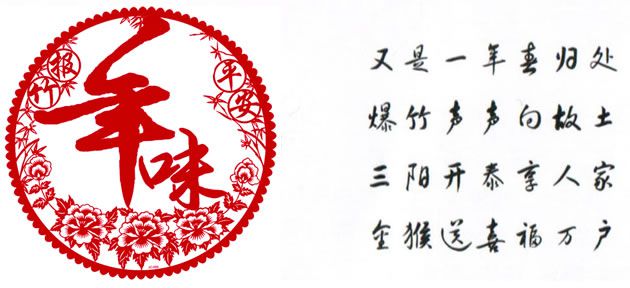 竹报
平安
年味
又是一年春归处
爆竹声声向故土
三阳开泰享人家
金猴送喜福万户